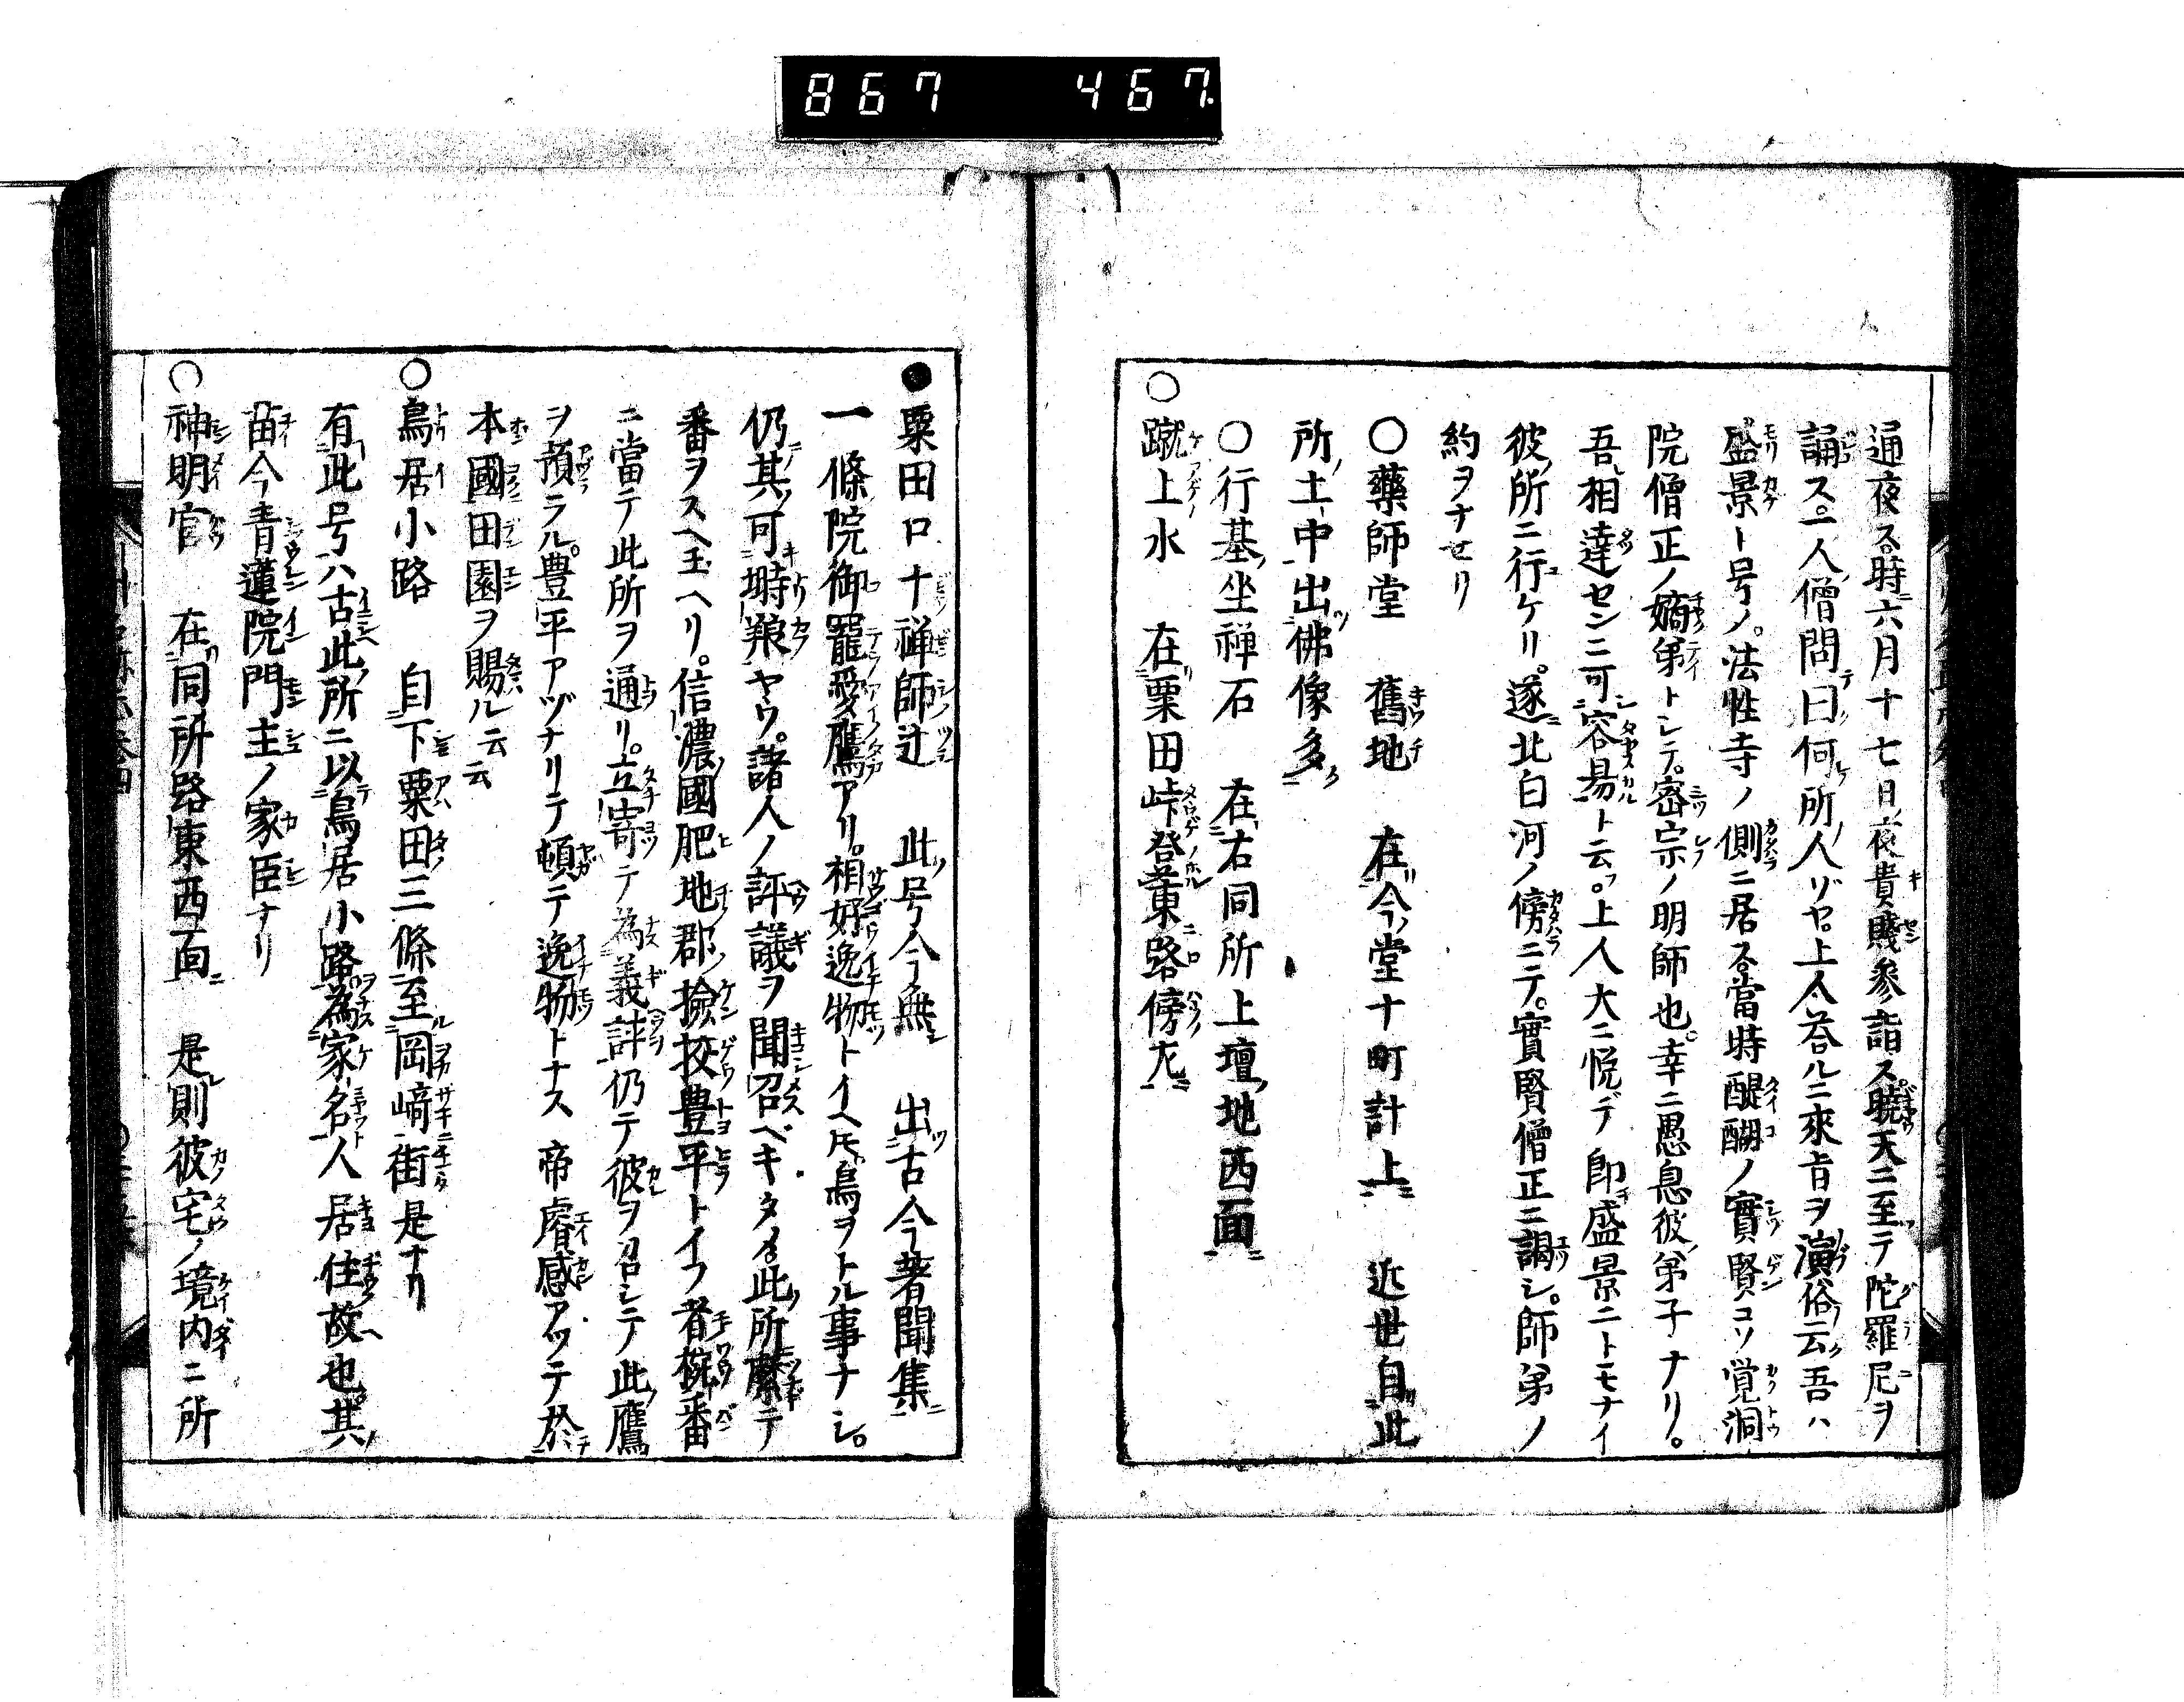 867 467
通夜ス時六月十七日ノ夜貴賤参詣ス曉天ニ至テ陀羅尼ヲ
誦ス。一人ノ僧問曰何ノ所ノ人ゾヤ。上人荅ルニ來旨ヲ演俗云吾ハ
盛景ト号ノ。法性寺ノ側ニ居ス當時醍醐ノ實賢コソ覚洞
院僧正ノ嫡弟トシテ。密宗ノ明師也。幸ニ愚息彼ノ弟子ナリ。
吾相達センニ可容易ト云。上人大ニ悦デ即盛景ニトモナイ
彼ノ所ニ行ケリ。遂北白河ノ傍ニテ。實賢僧正ニ謁シ。師弟ノ
約ヲナセリ
○藥師堂 舊地 在今ノ堂十町計上 近世自此
所ノ土中出佛像多
○行基坐禅石 在右同所上壇ノ地西面
○蹴上水 在粟田峠登東路傍尢
●粟田口十禅師辻 此号今無 出古今著聞集
一條院御寵愛鷹アリ。相好逸物トイヘ𪜈鳥ヲトル事ナシ。
仍其可塒粮ヤウ。諸人ノ評議ヲ聞召ベキタメ此所繋テ
番ヲスヘ玉ヘリ。信濃國肥地郡撿挍豊平トイフ者椀番
ニ當テ此所ヲ通リ。立寄テ為義評仍テ彼ヲ召シテ此鷹
ヲ預ラル。豊平アヅナリテ頓テ逸物トナス 帝睿感アツテ於
本國田園ヲ賜ル云云
○鳥居小路 自下粟田三條至岡﨑街是ナリ
有此号ハ古此所ニ以鳥居小路為家名人居住故也其
苗今青蓮院門主ノ家臣ナリ
○神明官 在同所路東西面 是則彼宅ノ境内ニ所